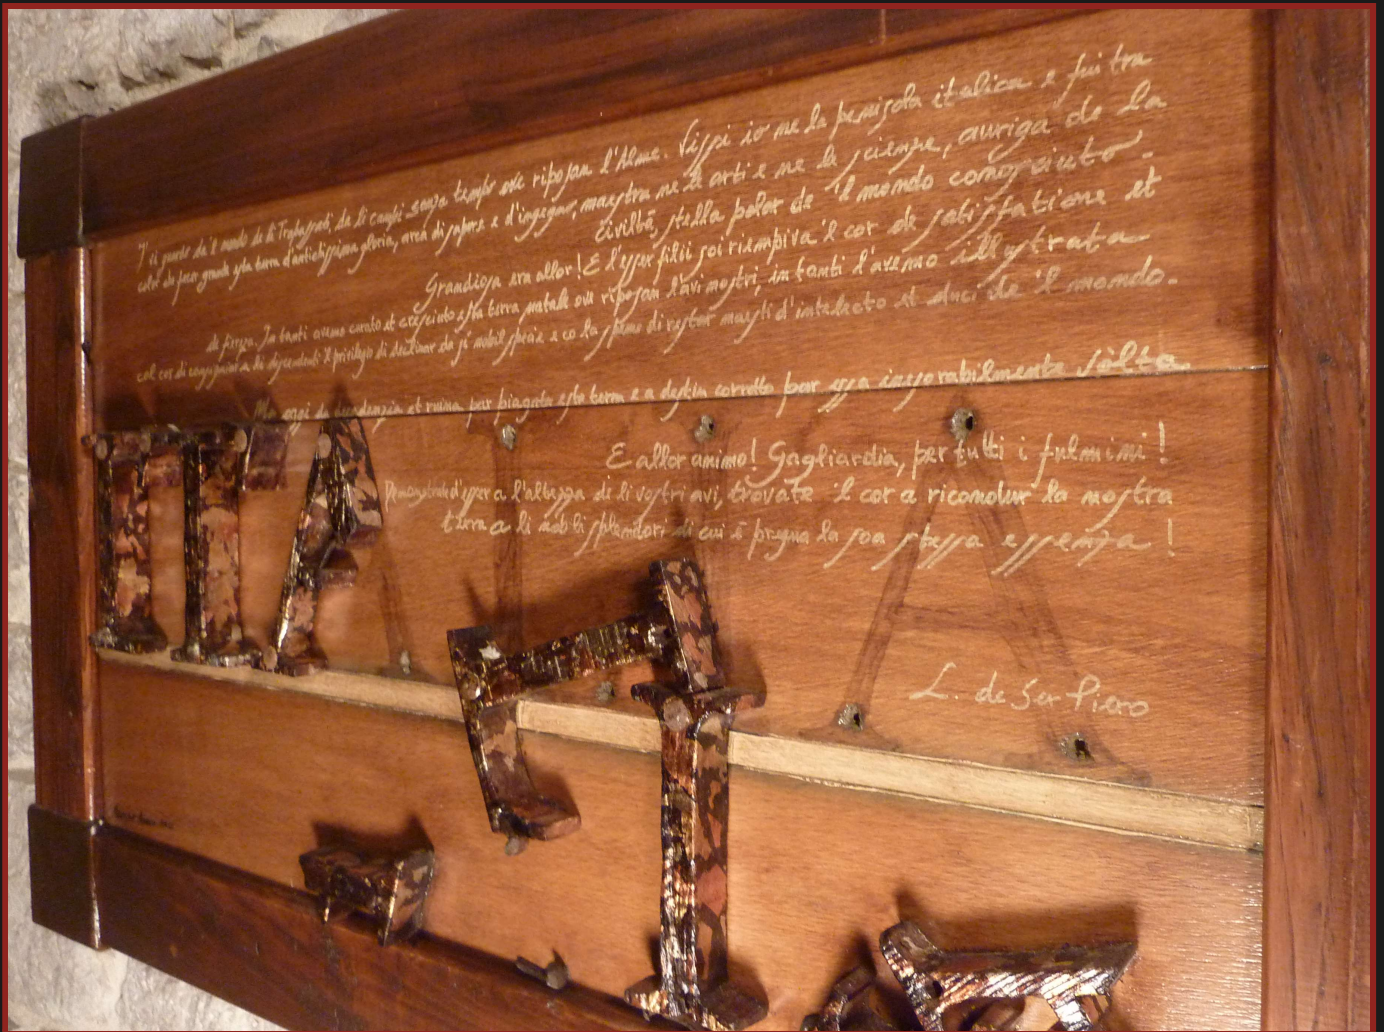 Vi guardo da 'l mondo de li Trapassati, da li campi sanza tempo ove riposan l'Alme. Vissi io ne la penisola italica e fui tra
color che fecer grande esta terra d'antichissima gloria, area di sapere e d'ingegno, maestra ne le arti e ne le scienze, auriga de la
civiltà, stella polar de 'l mondo conosciuto.
Grandiosa era allor! E l'esser filii soi riempiva 'l cor de satisfatione et
di fierezza. In tanti avemo curato et cresciuto esta terra natale ove riposan l'avi nostri, in tanti l'avemo illustrata
col cor di a li discendenti 'l privilegio di da sì nobil specie e co la speme di restar maestri d'intelecto et duci de 'l mondo.
Ma oggi decadenzia et ruina per piagata esta terra e a destin corrotto par essa inesorabilmente sólta.
E allor animo! Gagliardia, per tutti i fulmini!
Demonstrate d'esser a l'altezza de li vostri avi, trovate 'l cor a ricondur la nostra
terra a li nobili splendori di cui è pregna la soa stessa essenza!
L. de Ser Piero
ITALIA